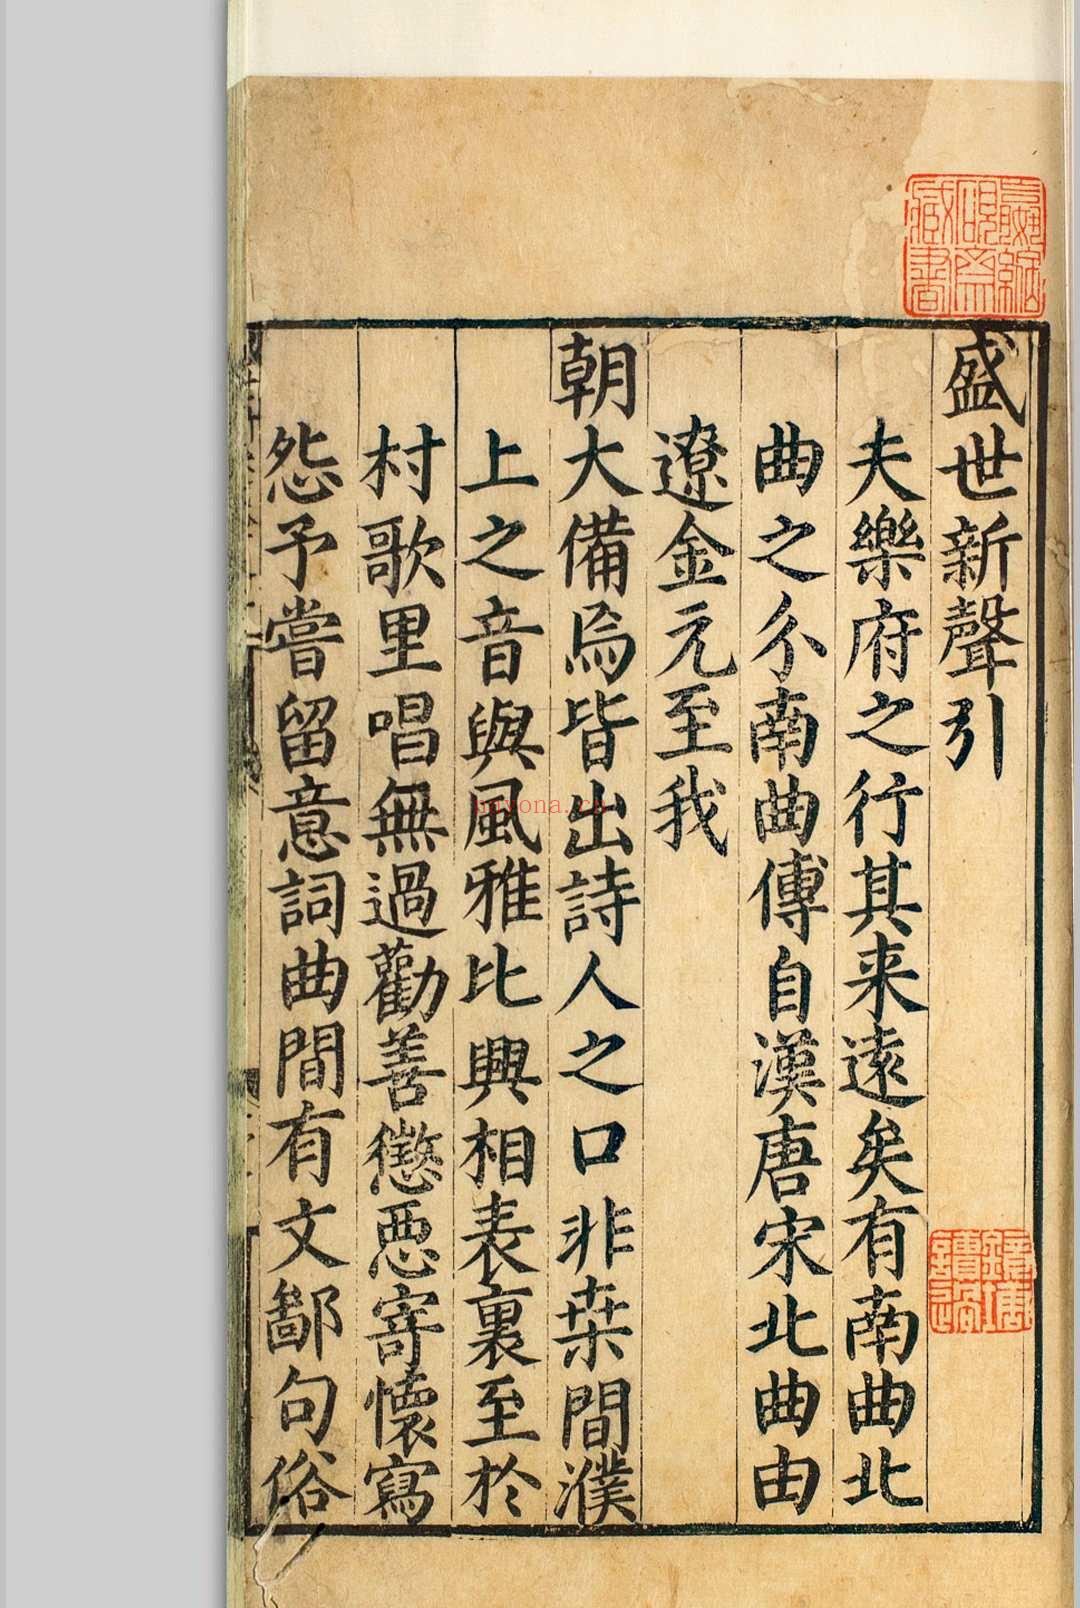 盛世新聲引
夫樂府之行其来逺矣有南曲北
曲之分南曲傳自漢唐宋北曲由
遼金元至我
朝大備焉皆出詩人之口非桒間濮
上之音與風雅比興相表裏至於
村歌里唱無過勸善懲惡寄懷寫
怨予嘗留意詞曲間有文鄙句俗